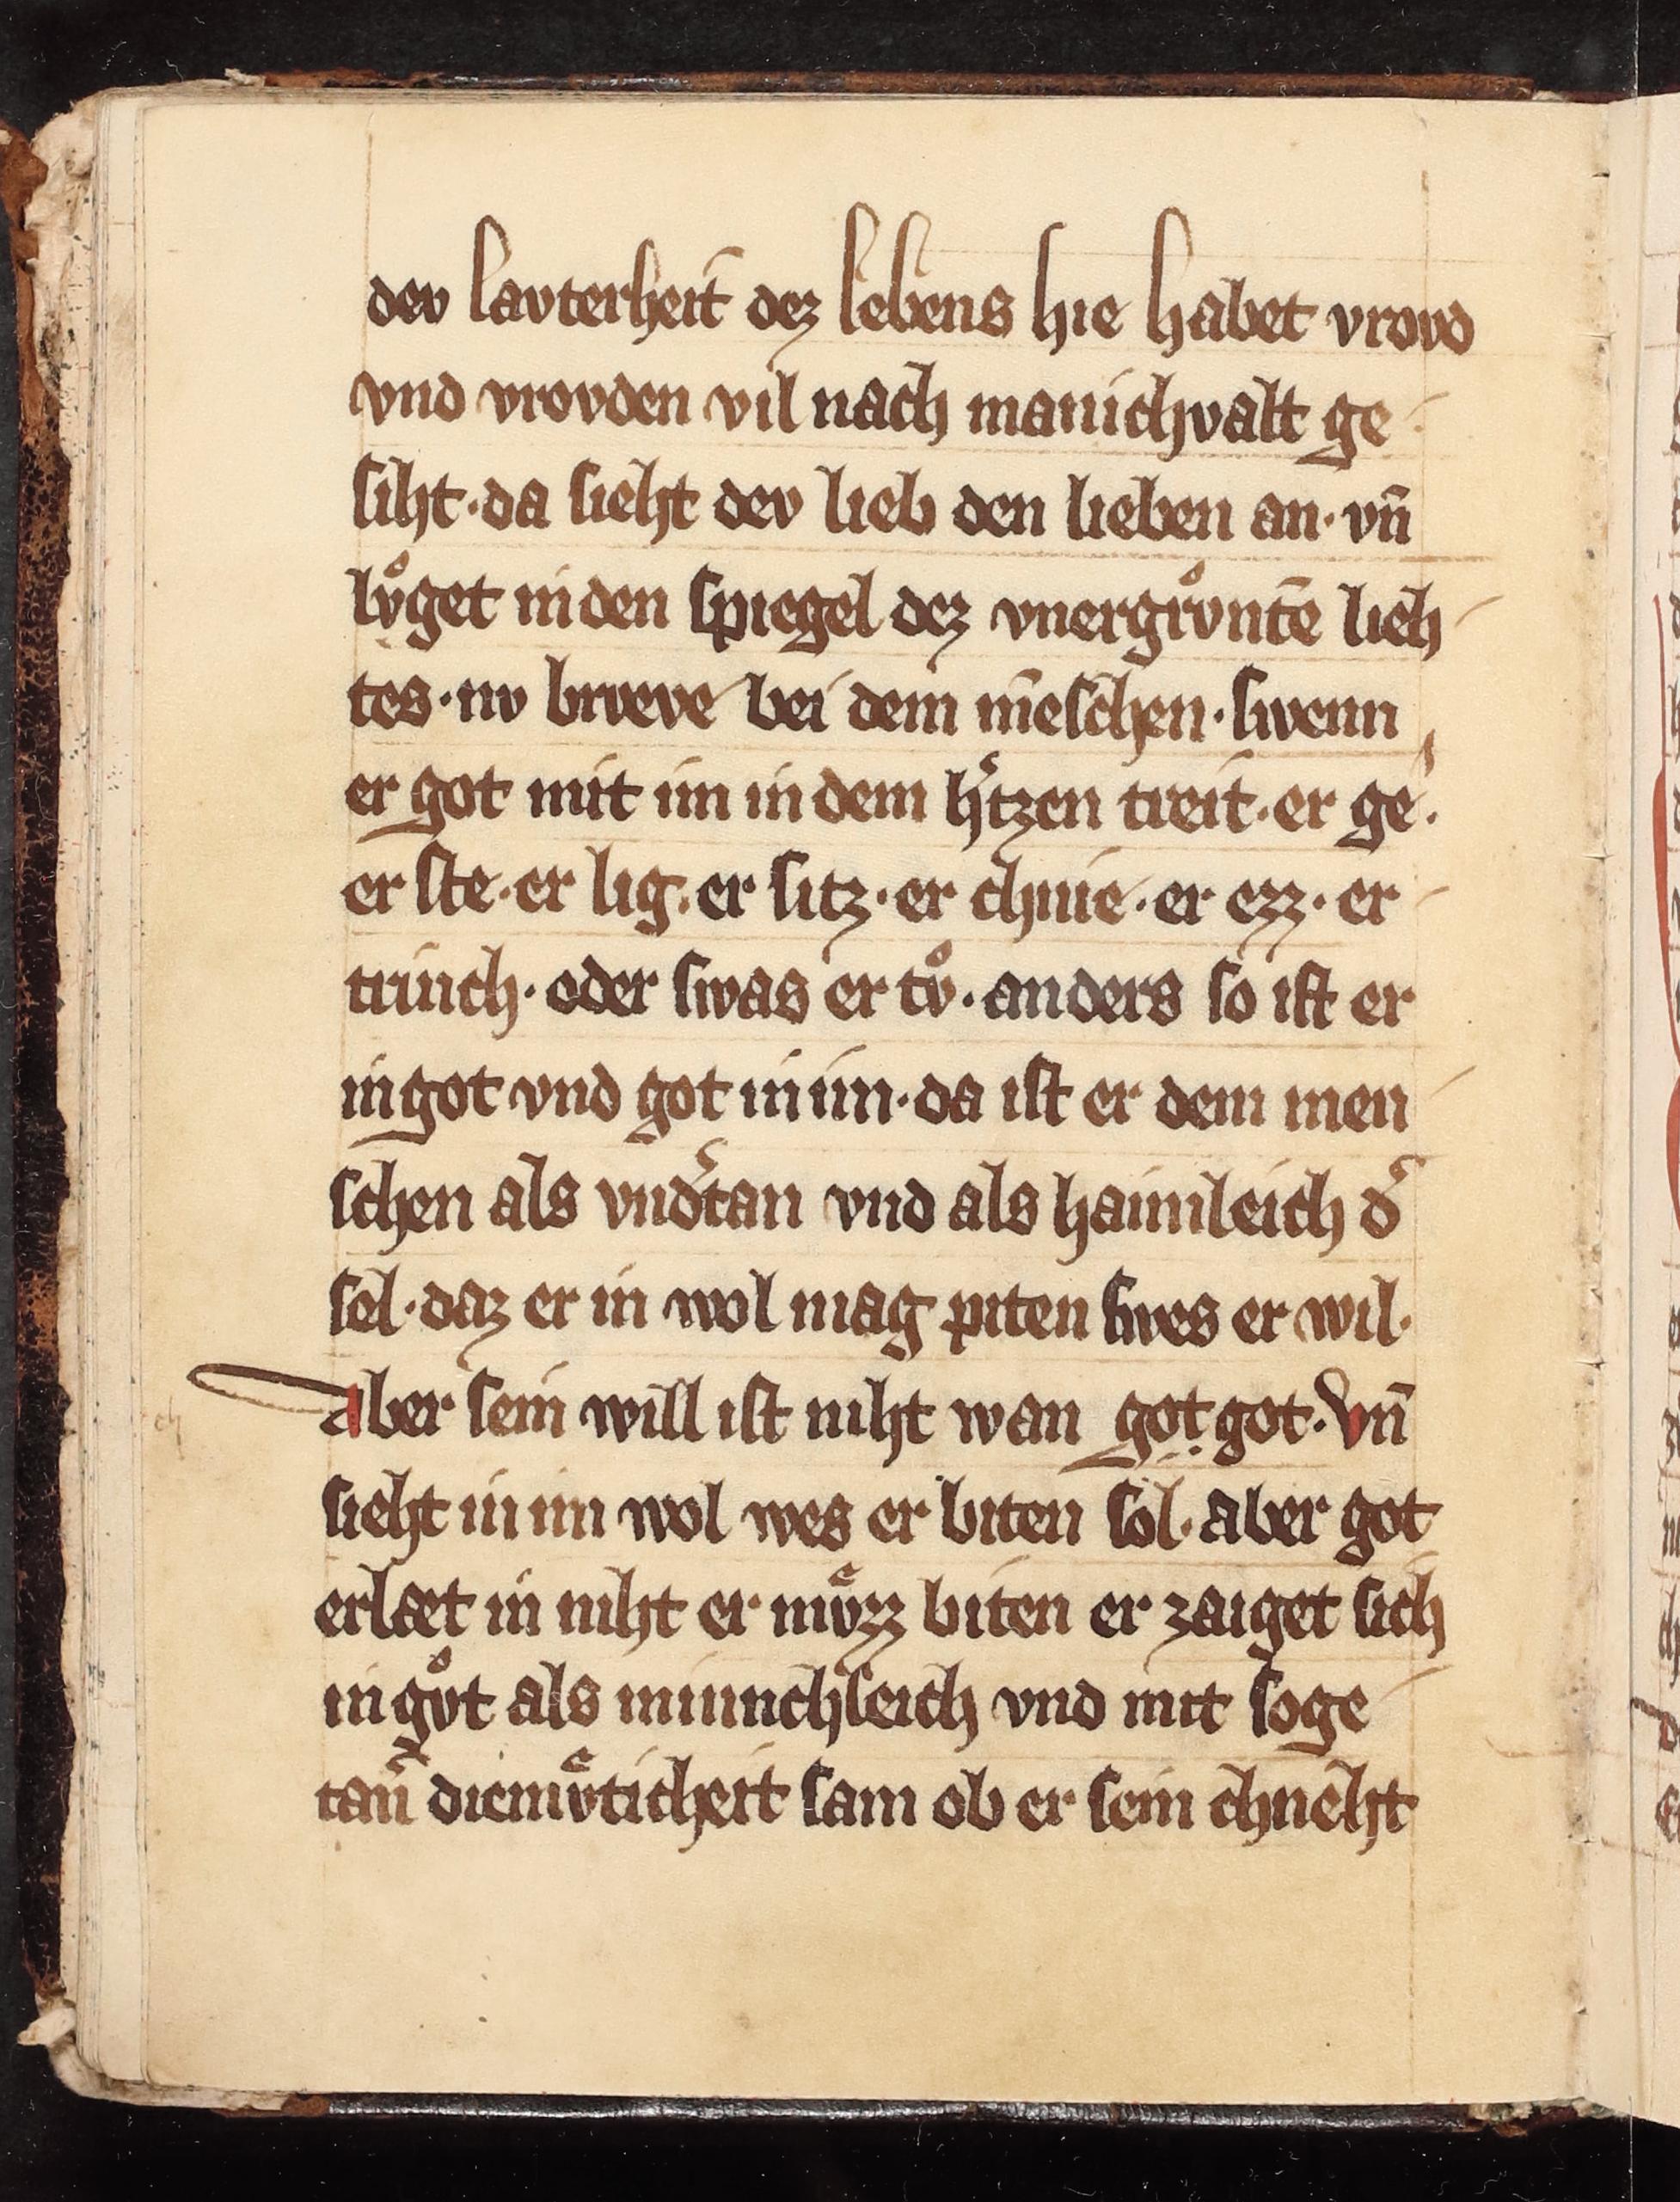 dev lavterheit dez lebens hie habet vrovd
vnd vrovden vil nach manichvalt ge
siht · da sieht dev lieb den lieben an · vn̄
lvͦget in den spiegel dez vnergrvͦntē lieh
tes · nv brveve bei dem mēschen · swenn
er got mit im in dem hˀtzen treit · er ge ·
er ste · er lig · er sitz · er chnie · er ezz · er
trinch · oder swas er tvͦ · anders so ist er
in got vnd got in im · da ist er dem men
schen als vndˀtan vnd als haimleich dˀ
sel · daz er in wol mag piten swes er wil ·
aber sein will ist niht wan got got · Vn̄
sieht in im wol wes er biten sol · aber got
erlæt in niht er mvͤzz biten er zaiget sich
in gvͦt als minnchleich vnd mit soge
tanˀ diemvͤticheit sam ob er sein chneht